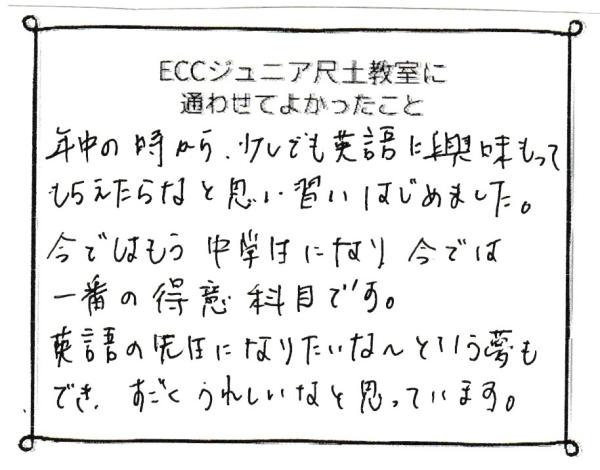 ECCジュニア尺土教室に
通わせてよかったこと
年中の時から、少しでも英語に興味もって
もらえたらなと思い習いはじめました。
今ではもう中学生になり今では
一番の得意科目です。
英語の先生になりたいな〜という夢も
でき、すごくうれしいなと思っています。